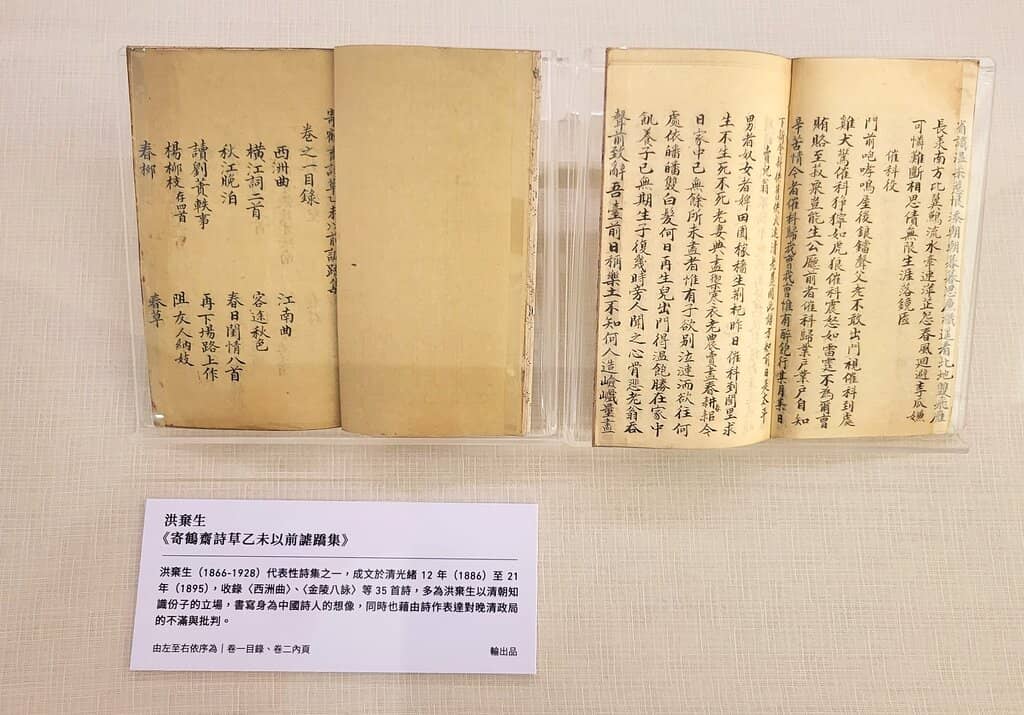 寄鶴齋詩草乙未以前謔蹻集
卷之一目錄
西洲曲 江南曲
橫江詞二首 客途秋色
秋江晚泊 春日閨情八首
讀劉蕡軼事 再下場路上作
楊柳枝存四首 阻友人納妓
春柳 春草
省識溫柔
長美南方比翼鶼流水牽連萍芷怎春風迴避李瓜嫌
可憐難斷相思債無限生涯落鏡匳
催科役
門前咆哮鳴屋後鋃鐺聲父老不敢出門視催科到處
雞犬驚催科猙獰如虎狼催科震怒如雷霆不為爾曹
賄賂至菽粟豈能生公廳前者催科歸業戶業戶自知
辛苦情今者催科歸我曹我曹惟有醉飽行某月某日
賣兒翁
男者奴女者婢田園稼穡生荊杞昨日催科到閭里求
生不生死不死老妻典盡禦寒衣老農賣盡春耕耜今
日家中已無餘所未盡者惟有子欲別泣漣洏欲往何
處依皤皤雙白髮何日再生兒出門得溫飽勝在家中
飢養子已無期生子復幾時旁人聞之心骨悲老翁吞
聲前致辭吾臺前日稱樂土不知何人造嶮巇量盡
洪棄生
《寄鶴齋詩草乙未以前謔蹻集》
洪棄生（1866-1928）代表性詩集之一，成文於清光緒 12 年（1886）至 21
年（1895），收錄〈西洲曲〉、〈金陵八詠〉等 35 首詩，多為洪棄生以清朝知
識份子的立場，書寫身為中國詩人的想像，同時也藉由詩作表達對晚清政局
的不滿與批判。
由左至右依序為｜卷一目錄、卷二內頁
輸出品